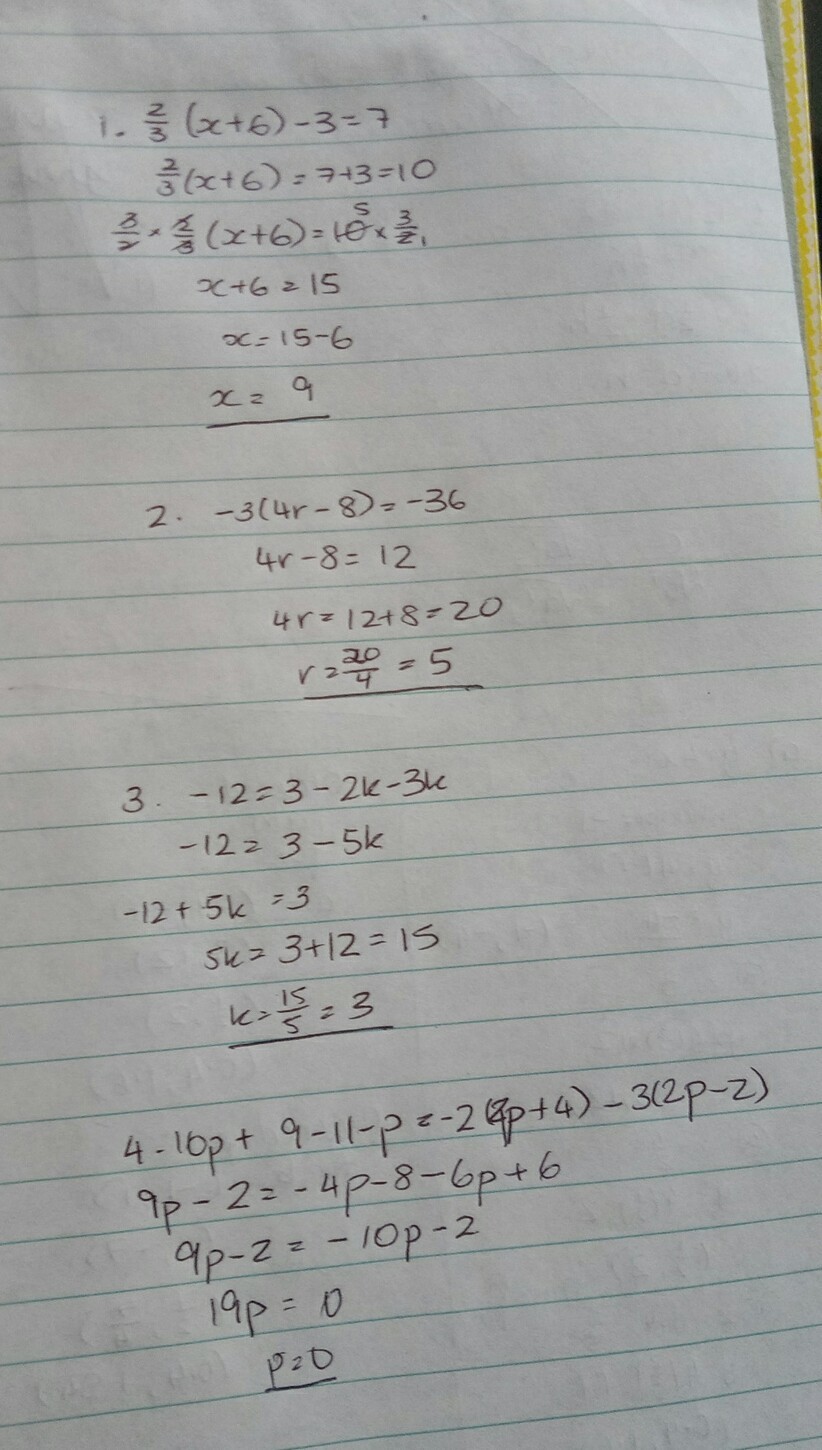 1. 2/3 (x+6) -3=7
2/3 (x+6) = 7+3=10
3/2 × 2/3 (x+6) = 10 5 × 3/2 1
x+6 = 15
x= 15-6
x= 9
2. -3(4r-8)=-36
4r-8= 12
4r= 12+8=20
r= 20/4 = 5
3. -12=3-2k-3k
-12= 3-5k
-12+ 5k =3
5k= 3+12=15
k= 15/5 = 3
4. 10p+ 9-11-p=-2(2p+4)-3(2p-2)
9p-2=-4p-8-6p+6
9p-2= -10p-2
19p= 0
p=0